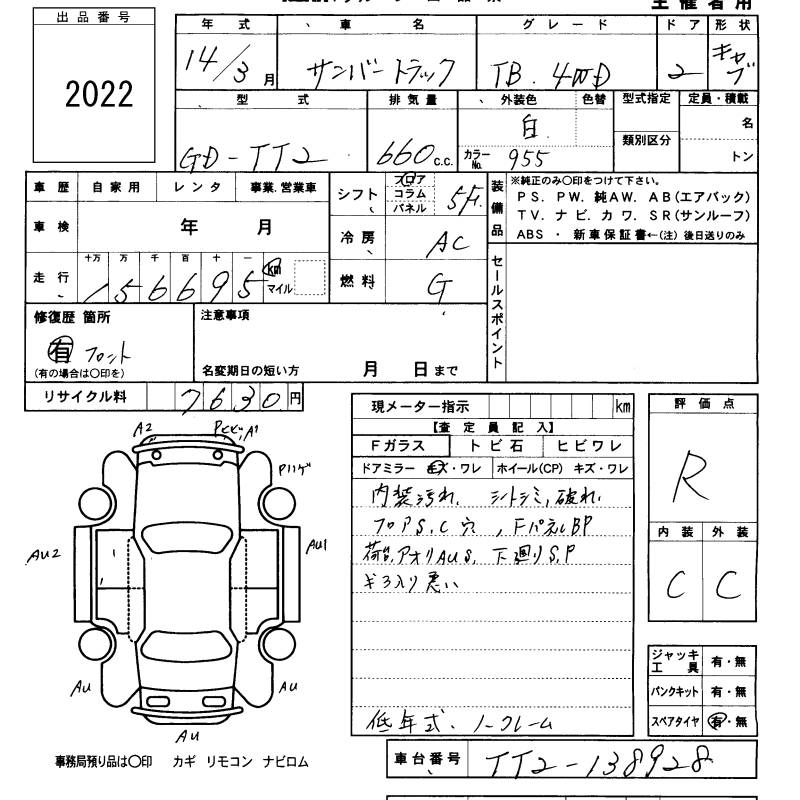 主催者用
出品番号
2022
年式 車名 グレード ドア 形状
14/3月 サンバートラック TB. 4WD 2 キャブ
型式 排気量 外装色 色替 型式指定 定員・積載
GD-TT2 660c.c. 白 類別区分 名
カラーNo. 955 トン
車歴 自家用 レンタ 事業.営業車
シフト フロア コラム パネル 5F.
装備品
※純正のみ〇印をつけて下さい。
PS. PW. 純AW. AB(エアバック)
TV. ナビ. カワ. SR(サンルーフ)
ABS ・ 新車保証書←(注) 後日送りのみ
車検 年 月
冷房 AC
走行 十万 万 千 百 十 一
156695 km マイル
燃料 G
セールスポイント
修復歴 箇所
有 フロント
(有の場合は〇印を)
注意事項
名変期日の短い方 月 日まで
リサイクル料 7630円
現メーター指示 km
【査定員記入】
Fガラス トビ石 ヒビワレ
ドアミラー キズ・ワレ ホイール(CP) キズ・ワレ
内装汚れ. シートシミ,破れ.
フロアS.C穴 , FパネルBP
荷台,アオリAUS. 下廻りS.P
ギヤ入り悪い
低年式. ノークレーム
評価点
R
内装 外装
C C
ジャッキ工具 有・無
パンクキット 有・無
スペアタイヤ 有・無
A2
A1
AU2
AU1
AU
AU
AU
事務局預り品は〇印 カギ リモコン ナビロム
車台番号 TT2-138928